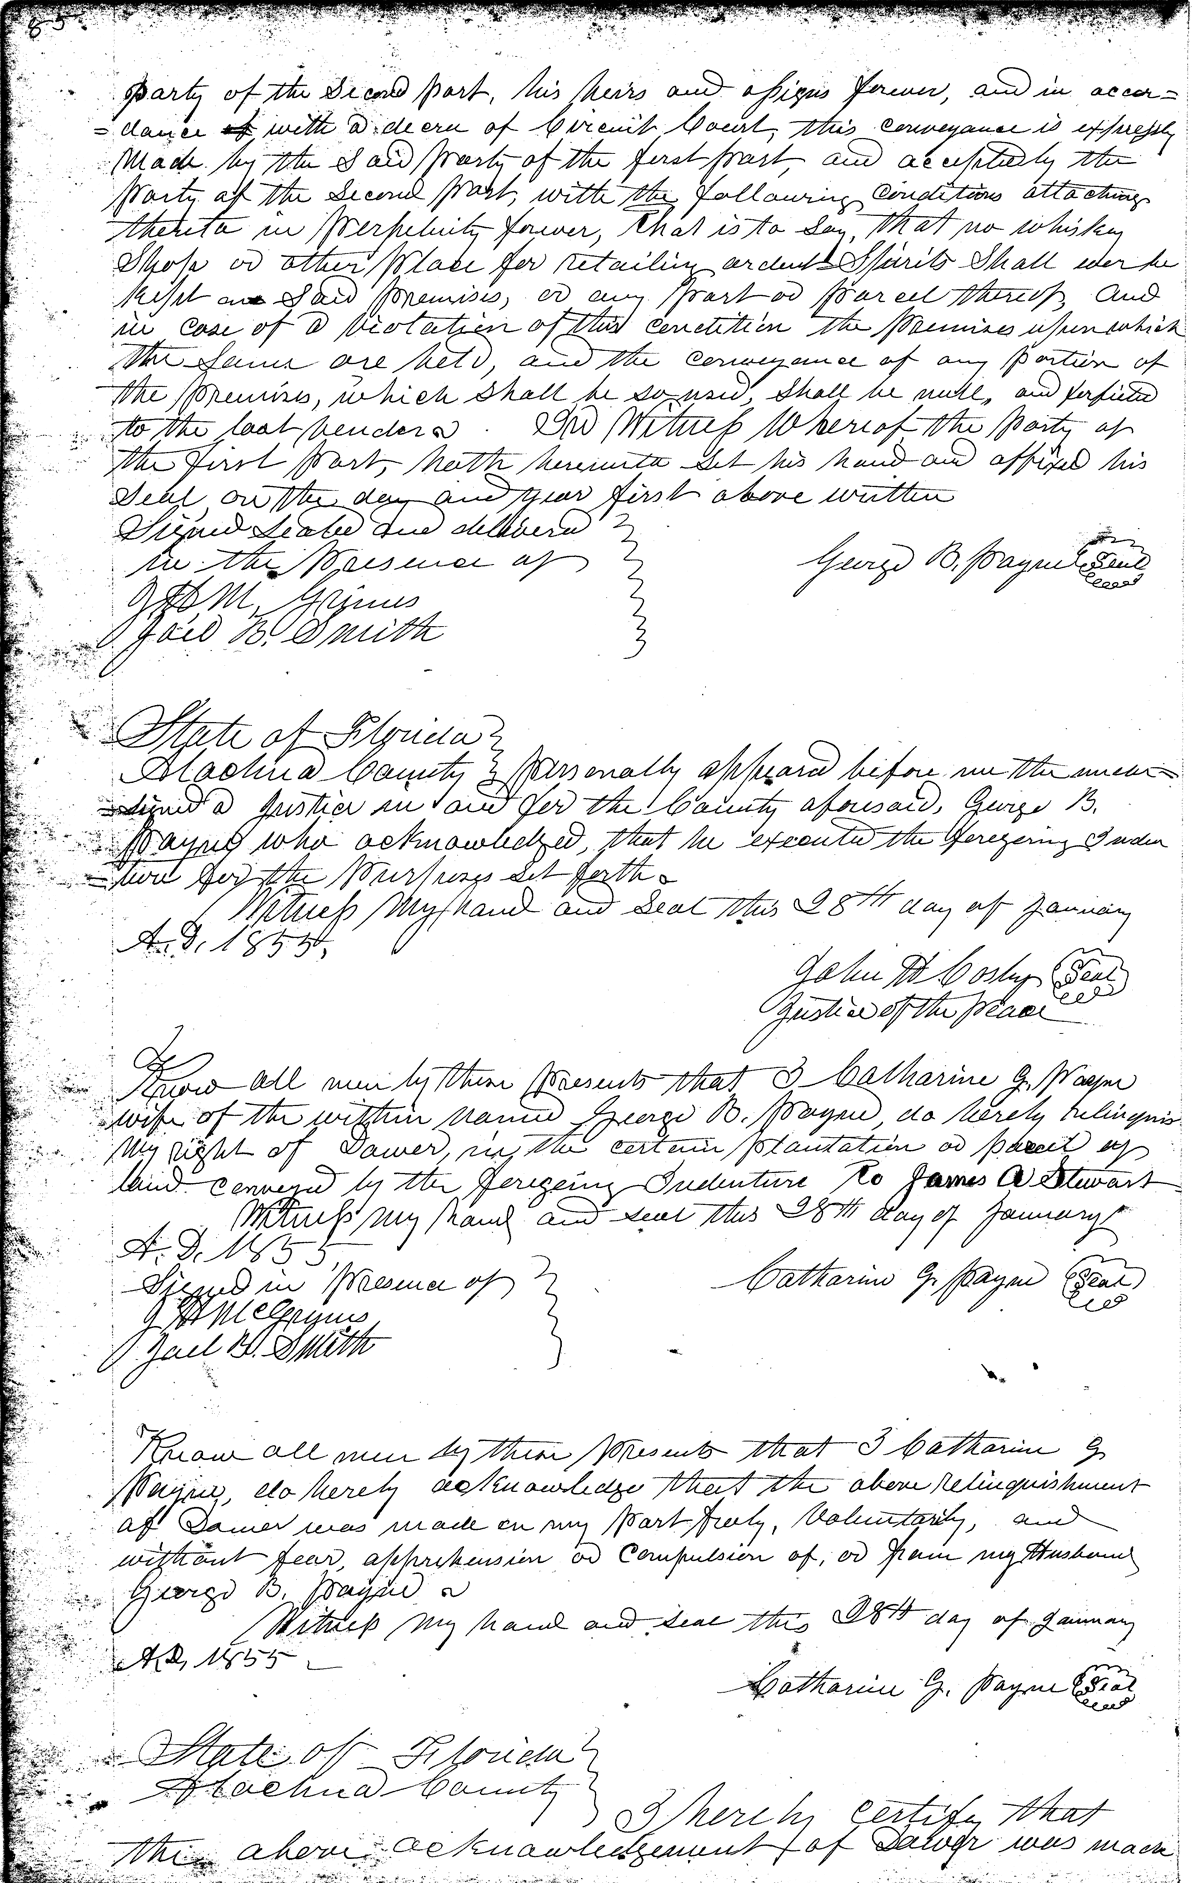 party of the second part, his heirs and assigns forever, and in accor=
=dance with a decree of Circuit Court, this conveyance is expressly
made by the said party of the first part, and accepted by the
party of the second part, with the following conditions attaching
thereto in perpetuity forever, that is to say, that no whiskey
Shop or other place for retailing ardent Spirits Shall ever be
kept on said premises, or any part or parcel thereof, and
in case of a violation of this condition the premises upon which
the same are held, and the conveyance of any portion of
the premises, which shall be so used, shall be null, and forfeited
to the last vendor. In Witness Whereof the party of
the first part, hath hereunto set his hand and affixed his
seal, on the day and year first above written
Signed Sealed and delivered
in the presence of
George B. Payne Seal
Smith
State of Florida
Alachua County Personally appeared before me the under=
=signed a Justice in and for the County aforesaid, George B.
Payne who acknowledged, that he executed the foregoing Inden
=ture for the purposes set forth.
Witness my hand and seal this 28th day of January
A.D. 1855.
John H Cosby Seal
Justice of the peace
Know all men by these presents that I Catharine G. Payne
wife of the within named George B. Payne, do hereby relinquis
my right of Dower, in the certain plantation or parcel of
land conveyed by the foregoing Indenture to James A Stewart
Witness my hand and seal this 28th day of January
A.D. 1855
Signed in presence of
Catharine G. Payne Seal
Smith
Know all men by these presents that I Catharine G
Payne, do hereby acknowledge that the above relinquishment
of Dower was made on my part freely, Voluntarily, and
without fear, apprehension or compulsion of, or from my Husband
George B. Payne
Witness my hand and seal this 28th day of January
A.D. 1855
Catharine G. Payne Seal
State of Florida
Alachua County
I hereby certify that
the above acknowledgement of Dower was made